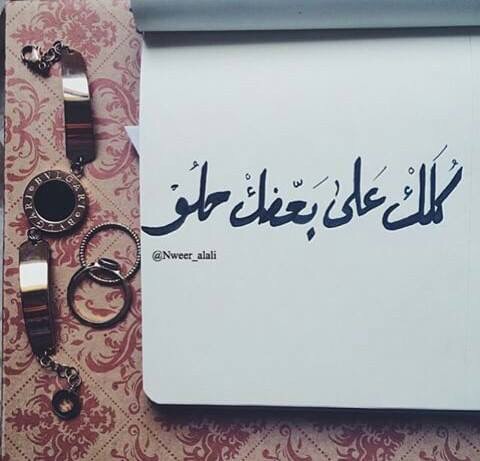 كُلكْ عَلىٰ بَعّضكْ حلُوْ
@Nweer_alali
BVLGARI BVLGARI